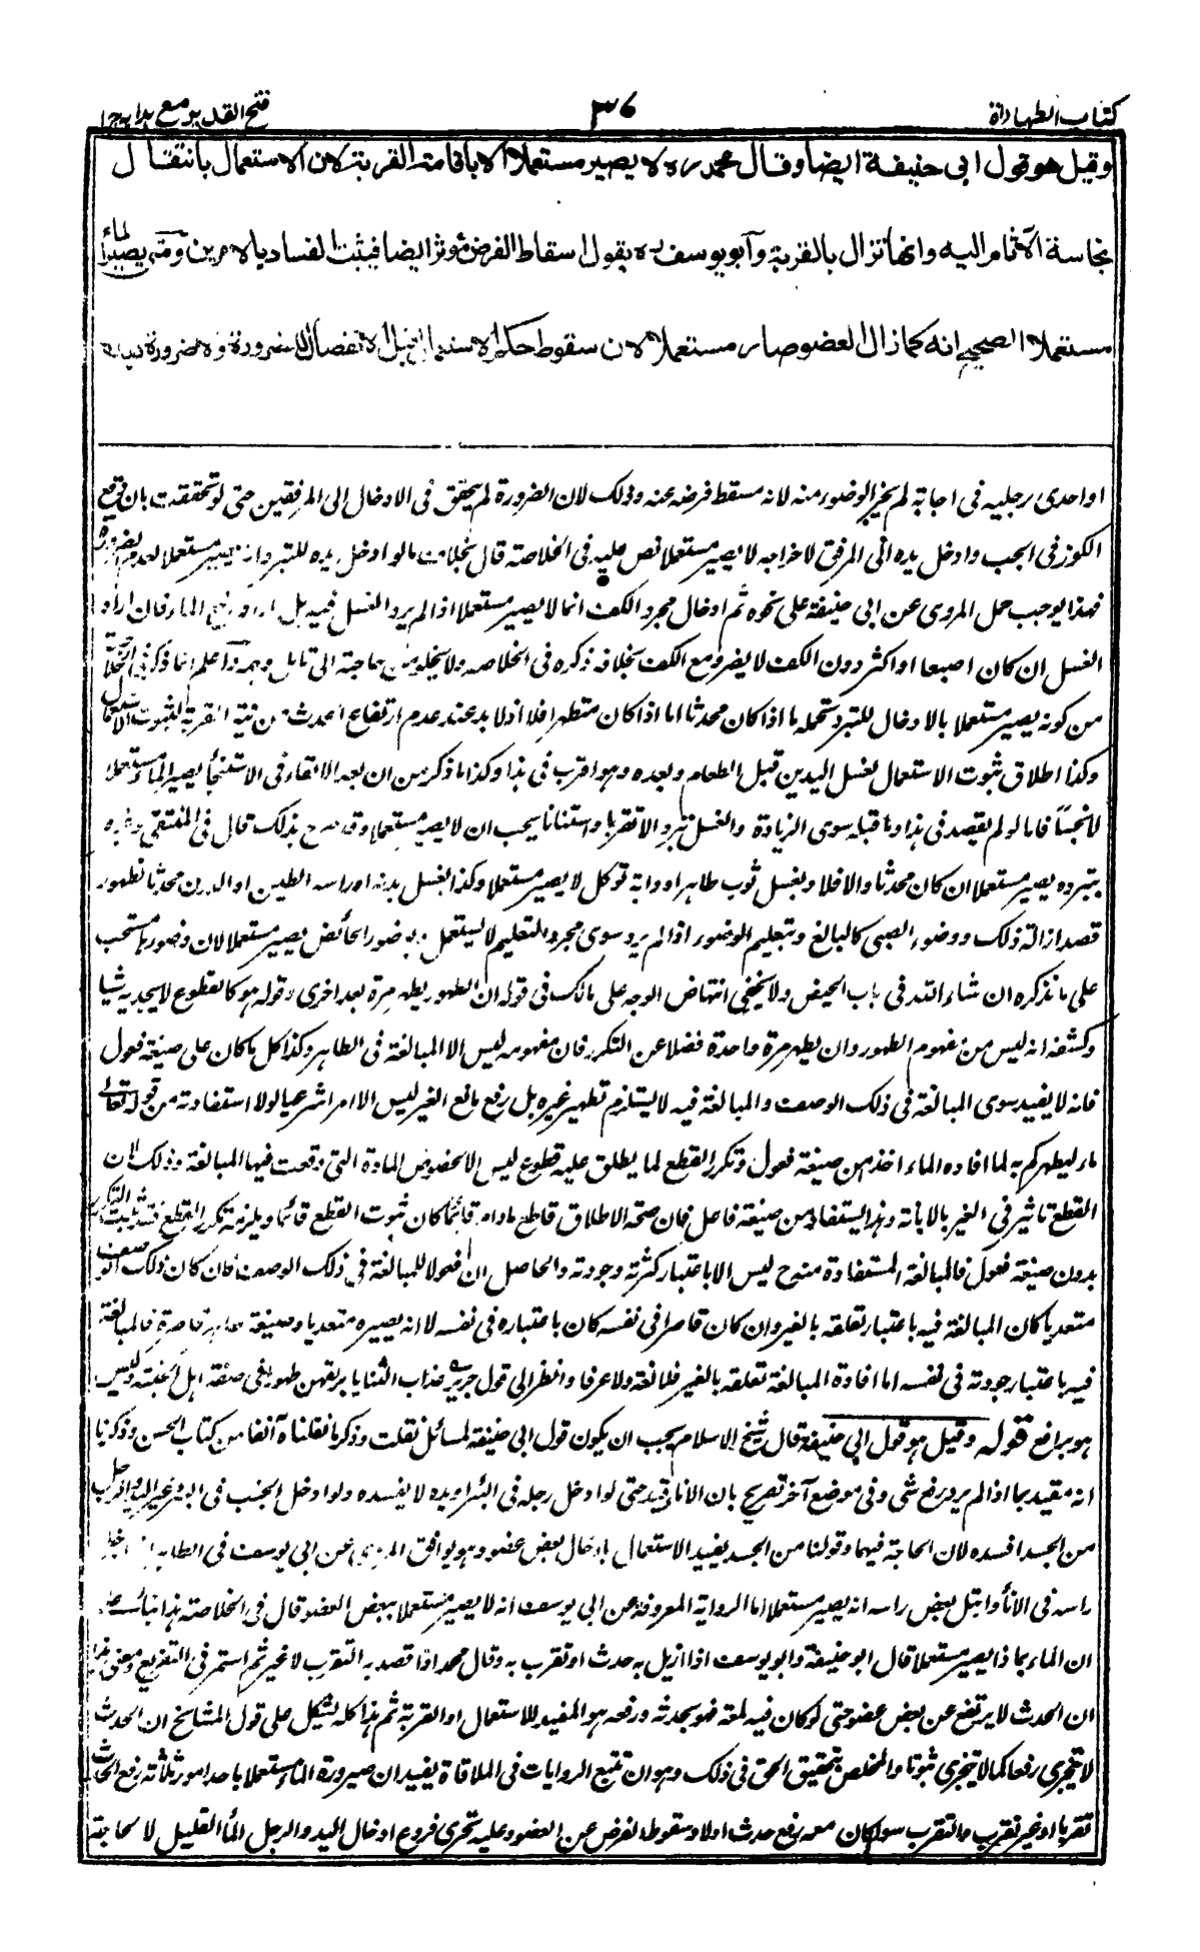 كتاب الطهارة
٣٦
فتح القدير مع هدايه ج١
وقيل هو قول ابى حنيفة ايضا وقال محمد ره لا يصير مستعملا الا باقامة القربة لان الاستعمال بانتقال
نجاسة الآثام اليه وانها تزال بالقربة وأبو يوسف ره يقول اسقاط الفرض مؤثر ايضا فيثبت الفساد بالامرين ومتى يصير الماء
مستعملا الصحيح انه كما زال العضو صار مستعملا لان سقوط حكم الاستعمال قبل الانفصال للضرورة ولا ضرورة بعده
او احدى رجليه فى اجانة لم يجز الوضوء منه لانه سقط فرضه عنه وذلك لان الضرورة لم يتحقق فى الادخال الى المرفقين حتى لو تحققت بان وقع
الكوز فى الجب وادخل يده الى المرفق لاخراجه لا يصير مستعملا نص عليه فى الخلاصة قال بخلاف ما لو ادخل يده للتبرد انه يصير مستعملا لعدم الضرورة
فهذا يوجب حمل المروى عن ابى حنيفة على نحوه ثم ادخال مجرد الكف انما لا يصير مستعملا اذا لم يرد الغسل فيه بل اراد رفع الماء فان اراد
الغسل ان كان اصبعا او اكثر دون الكف لا يضر ومع الكف بخلافه ذكره فى الخلاصة ولا يخلو من حاجته الى تامل وجهه واعلم انما ذكر فى الخلاصة
من كونه يصير مستعملا بالادخال للتبرد محمله ما اذا كان محدثا اما اذا كان متطهرا فلا اذ لا بد عند عدم ارتفاع الحدث من نية القربة لثبوت الاستعمال
وكذا اطلاق ثبوت الاستعمال بغسل اليدين قبل الطعام وبعده وهو اقرب فى هذا وكذا ما ذكر من ان بعد الانقاء فى الاستنجأ يصير الماء مستعملا
لا نجسا فاما لو لم يقصد فى هذا وما قبله سوى الزيادة والغسل تبرد الا تقربا واستنانا يجب ان لا يصير مستعملا وقد صرح بذلك قال فى المنتقى وغيره
بتبرده يصير مستعملا ان كان محدثا والا فلا وبغسل ثوب طاهر او دابة توكل لا يصير مستعملا وكذا بغسل بدنه او راسه الطين او الدرن محدثا لظهور
قصد ازالة ذلك ووضوء الصبى كالبالغ وبتعليم الوضوء اذا لم يرد سوى مجرد التعليم لا يستعمل وبوضوء الحائض يصير مستعملا لان وضوءها مستحب
على ما نذكره ان شاء الله فى باب الحيض ولا يخفى انتهاض الوجه على مالك فى قوله ان الطهور يطهر مرة بعد اخرى وقوله هو كالقطوع لا يجديه شيا
وكشفه انه ليس من مفهوم الطهور وان يطهر مرة واحدة فضلا عن التكرر فان مفهومه ليس الا المبالغة فى الطاهر وكذا كل ما كان على صيغة فعول
فانه لا يفيد سوى المبالغة فى ذلك الوصف والمبالغة فيه لا يستلزم تطهير غيره بل رفع مانع الغير ليس الا امرا شرعيا لولا استفادته من قوله تعالى
ماء ليطهركم به لما افاده الماء اخذ من صيغة فعول وتكرر القطع لما يطلق عليه قطوع ليس الا لخصوص المادة التى وقعت فيها المبالغة وذلك لان
القطع تاثير فى الغير بالابانة وهذا يستفاد من صيغة فاعل فان صحة الاطلاق قاطع مادام قائما كان ثبوت القطع قائما ويلزمه تكرر القطع فيثبت التكرر
بدون صيغة فعول فالمبالغة المستفادة منه ح ليس الا باعتبار كثرته وجودته والحاصل ان فعولا للمبالغة فى ذلك الوصف فان كان ذلك الوصف
متعديا كان المبالغة فيه باعتبار تعلقه بالغير وان كان قاصرا فى نفسه كان باعتباره فى نفسه لا انه يصيره متعديا وصيغة طاهر قاصرة فالمبالغة
فيه باعتبار جودته فى نفسه اما افادة المبالغة تعلقه بالغير فلا لغة ولا عرفا وانظر الى قول جرير عذاب الثنايا ريقهن طهور فى صفة اهل الجنة وليس
هو برافع قوله وقيل هو قول ابى حنيفة قال شيخ الاسلام يجب ان يكون قول ابى حنيفة لمسائل نقلت وذكر ما نقلناه آنفا من كتاب الحسن وذكرنا
انه مقيد بما اذا لم يرد رفع شى وفى موضع آخر تصريح بان الاناء قيد حتى لو ادخل رجله فى البئر او يده لا يفسده ولو ادخل الجنب فى البئر غير اليد والرجل
من الجسد افسده لان الحاجة فيهما وقولنا من الجسد يفيد الاستعمال بادخال بعض عضو وهو يوافق المروى عن ابى يوسف فى الطاهر اذا ادخل
راسه فى الاناء وابتل بعض راسه انه يصير مستعملا اما الرواية المعروفة عن ابى يوسف انه لا يصير مستعملا ببعض العضو قال فى الخلاصة هذا بناء على
ان الماء بما ذا يصير مستعملا قال ابو حنيفة وابو يوسف اذا ازيل به حدث او تقرب به وقال محمد اذا قصد به التقرب لا غير ثم استمر فى التفريع ومعنى هذا
ان الحدث لا يرتفع عن بعض عضو حتى لو كان فيه لمعة فهو بحدثه ورفعه هو المفيد للاستعمال او القربة ثم هذا كله يشكل على قول المشائخ ان الحدث
لا يتجزى رفعا كما لا يتجزى ثبوتا والمخلص بتحقيق الحق فى ذلك وهو ان تتبع الروايات فى الملاقاة يفيد ان صيرورة الماء مستعملا باحد امور ثلاثة رفع الحدث
تقربا او غير تقرب والتقرب سواء كان معه رفع حدث اولا وسقوط الفرض عن العضو وعليه تجرى فروع ادخال اليد والرجل الماء القليل لا لحاجة